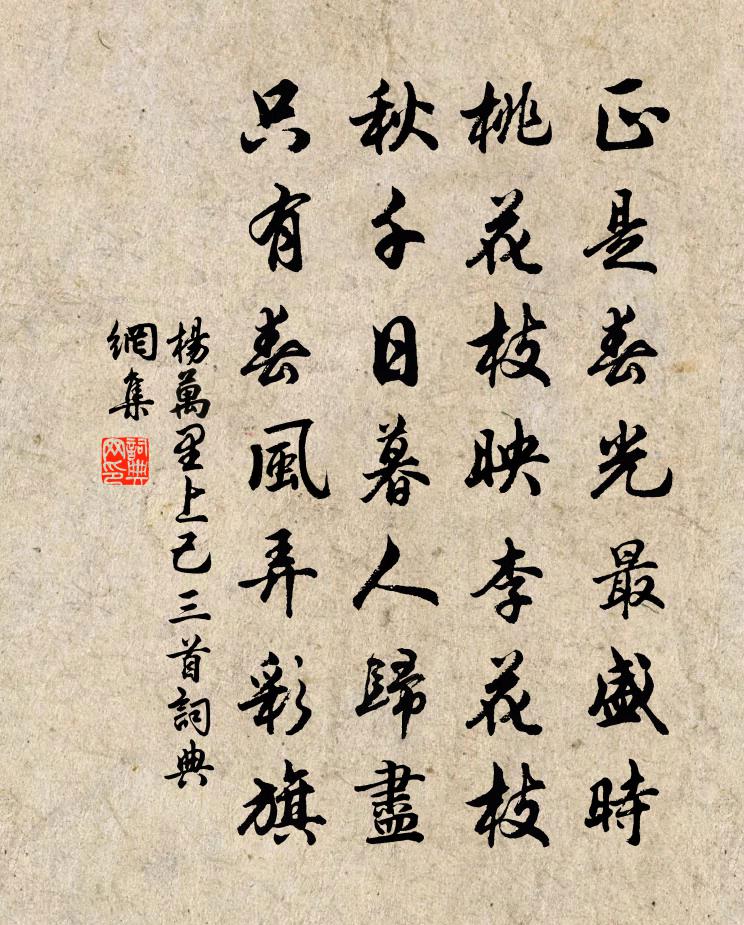 正是春光最盛時
桃花枝映李花枝
秋千日暮人歸盡
只有春風弄彩旗
楊萬里上巳三首詞典
網集
詞典
网印